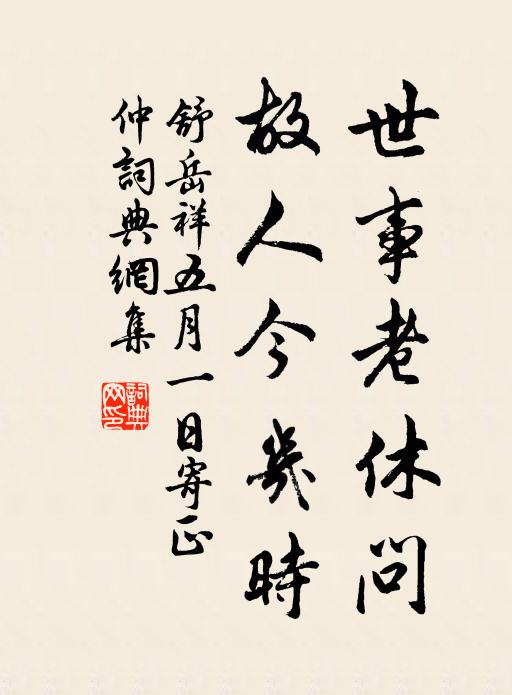 世事老休問
故人今幾時
舒岳祥五月一日寄正
仲詞典網集
詞典
网印